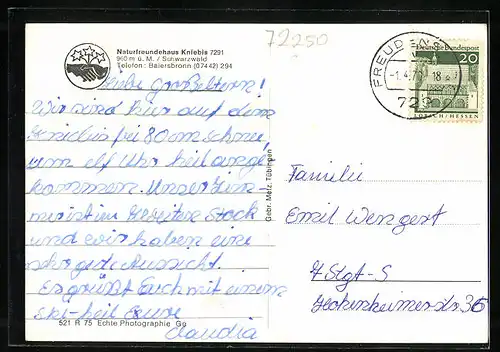 72250
Naturfreundehaus Kniebis 7291
960 m ü. M. / Schwarzwald
Telefon: Baiersbronn (07442) 294
FREUDENS
-1.4.7 18
729
Deutsche Bundespost
20
LORSCH/HESSEN
Liebe Großeltern!
Wir sind hier auf dem
Kniebis bei 80 cm Schnee,
um elf Uhr heil ange-
kommen. Unser Zim-
mer ist im zweiten Stock
und wir haben eine
sehr gute Aussicht.
Es grüßt Euch mit einem
Ski-heil Eure
Claudia
521 R 75 Echte Photographie Gp
Gebr. Metz, Tübingen
Familie
Emil Wengert
7 Stgt-S
36